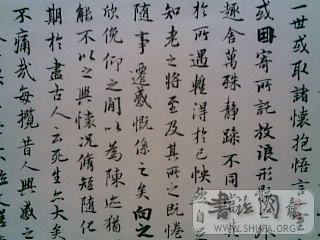 一世或取諸懷抱悟言
或因寄所託放浪形
趣舍萬殊靜躁不同
於所遇蹔得於己怏然自
知老之將至及其所之既惓
隨事遷感慨係之矣向之
欣俛仰之間以為陳迹猶
能不以之興懷況脩短隨化
期於盡古人云死生亦大矣
不痛哉每攬昔人興感之
WWW.SHUFA.ORG